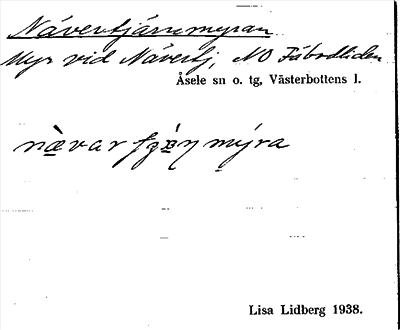 Nävertjärnmyran
Myr vid Nävertj, NO Fäbodliden
Åsele sn o. tg, Västerbottens l.
mýra
Lisa Lidberg 1938.